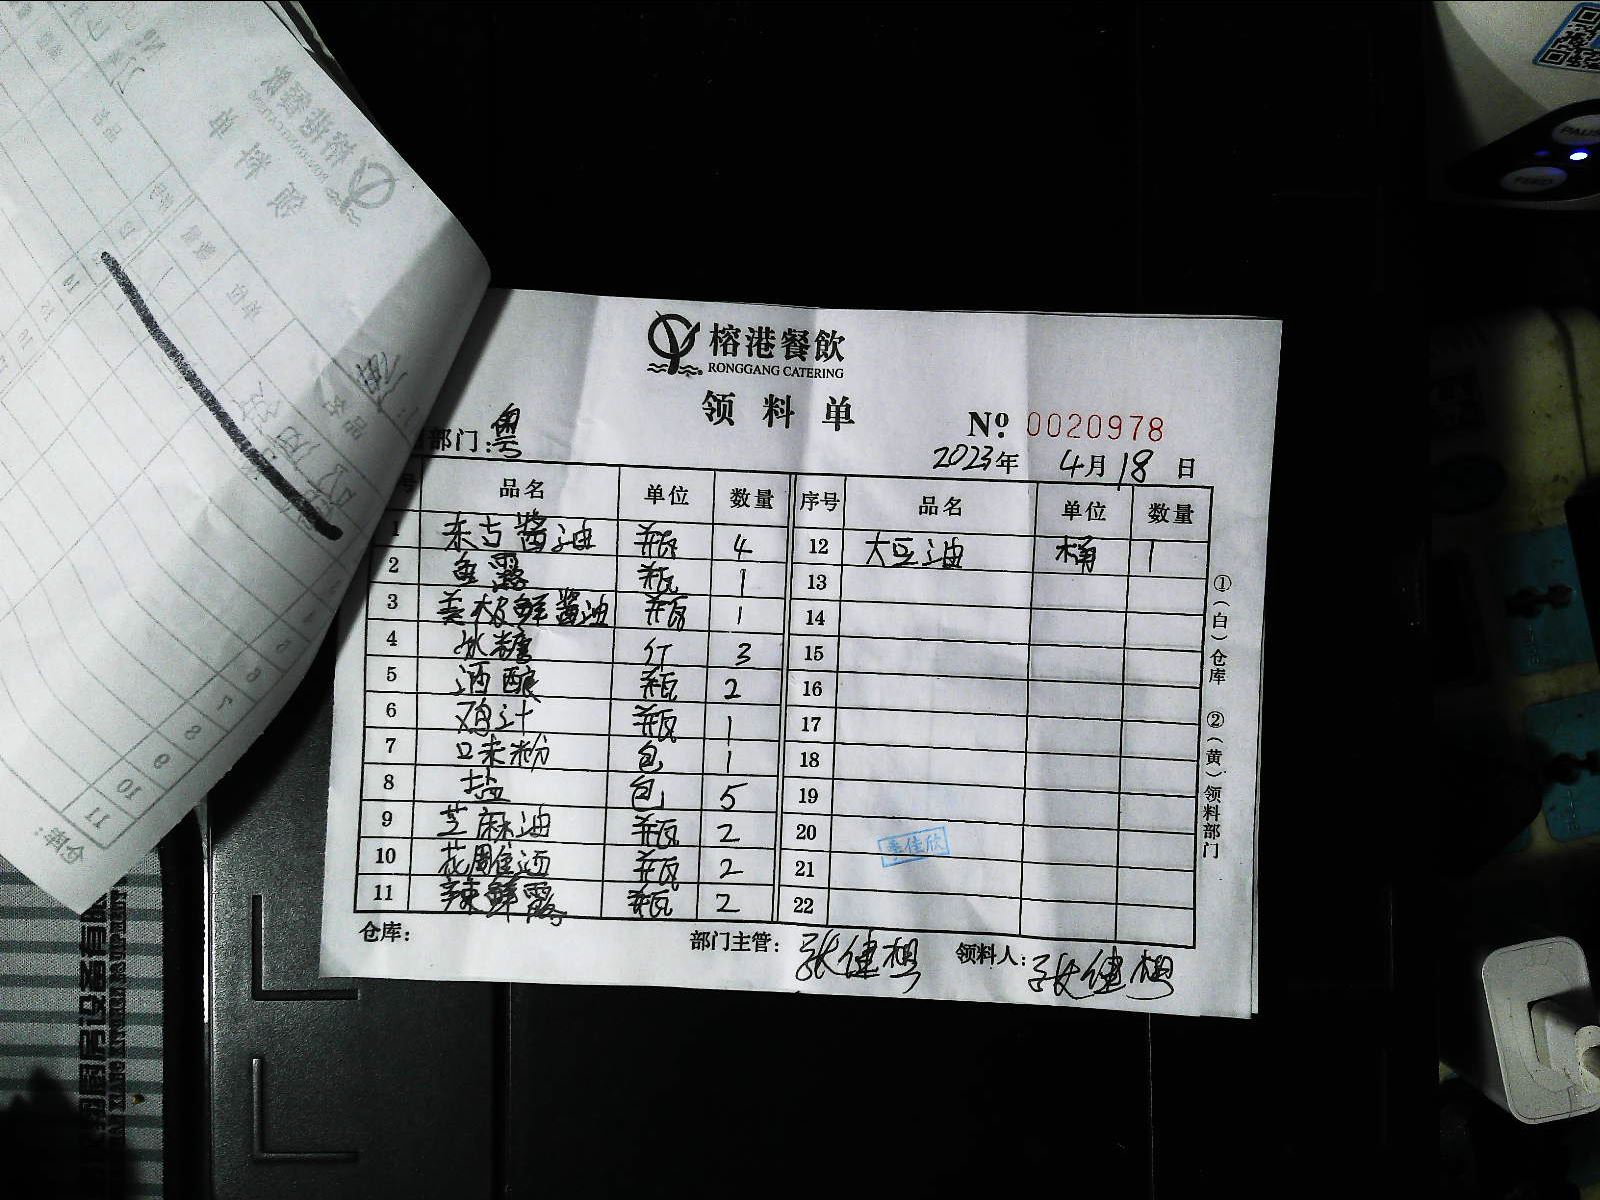 榕港餐飲
RONGGANG CATERING
领料单
部门:粤
Nº 0020978
2023年 4月18日
号 品名 单位 数量 序号 品名 单位 数量
1 东古醬油 瓶 4 12 大豆油 桶 1
2 鱼露 瓶 1 13
3 美极鲜醬油 瓶 1 14
4 冰糖 斤 3 15
5 酒酿 瓶 2 16
6 鸡汁 瓶 1 17
7 口味粉 包 1 18
8 盐 包 5 19
9 芝麻油 瓶 2 20
10 花雕酒 瓶 2 21
11 辣鲜露 瓶 2 22
佳欣
仓库: 部门主管:张健想 领料人:张健想
①(白)仓库 ②(黄)领料部门
PAUSE
FEED